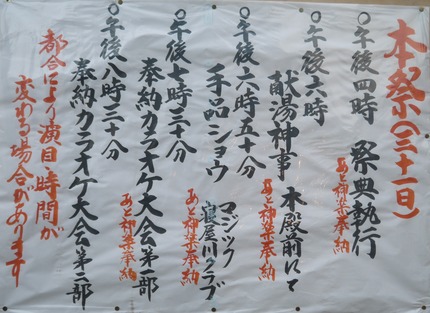 本祭(三十一日)
○午後四時 祭典執行
あと神楽奉納
○午後六時
献湯神事 本殿前にて
あと神楽奉納
○午後六時五十分
手品ショウ マジック寝屋川クラブ
あと神楽奉納
○午後七時三十分
奉納カラオケ大会第一部
あと神楽奉納
○午後八時三十分
奉納カラオケ大会第二部
都合により演目、時間が
変わる場合があります